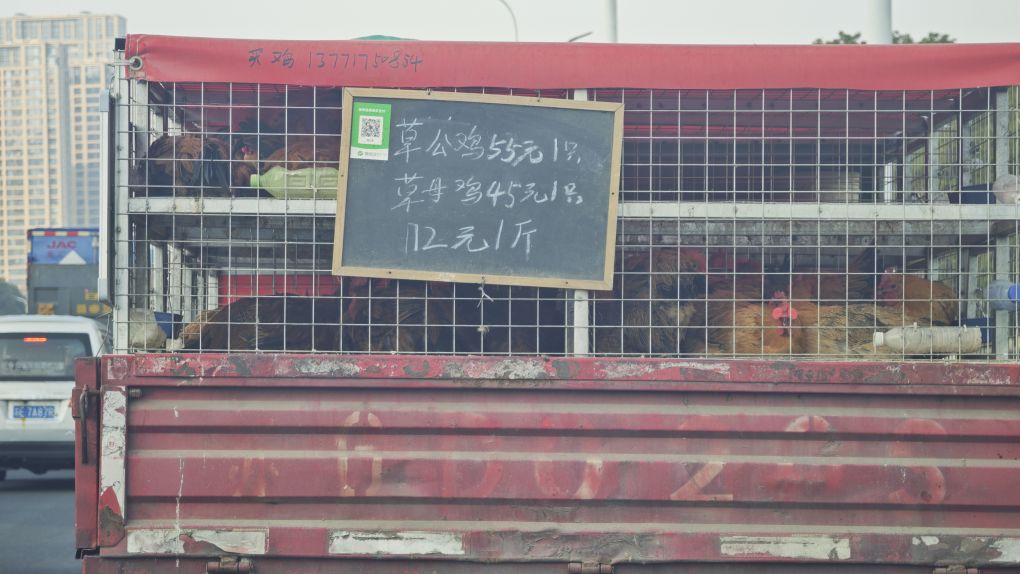 买鸡 13771750854
草公鸡55元1只
草母鸡45元1只
12元1斤
JAC